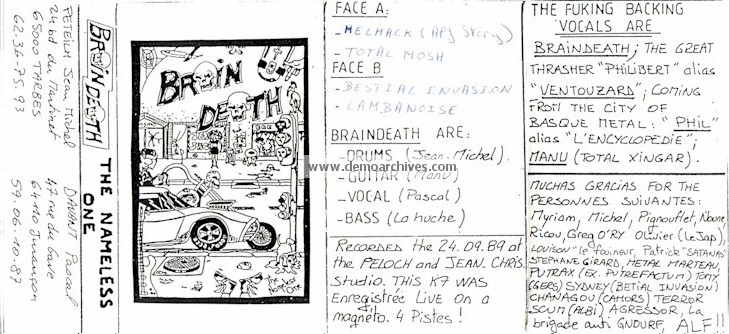 PETEILH Jean Michel
24 bd du Martinet
65000 TARBES
62.34.75.93
DAVANT Pascal
47 rue du Gave
64110 Jurançon
59.06.10.87
BRAINDEATH
THE NAMELESS
ONE
BRAIN
DEATH
www.demoarchives.com
FACE A:
- MELMACK (Alf Story)
- TOTAL MOSH
FACE B
- BESTIAL INVASION
- LAMBANOISE
BRAINDEATH ARE:
- DRUMS (Jean-Michel).
- GUITAR (Manu)
- VOCAL (Pascal)
- BASS (La huche)
RECORDED the 24.09.89 at
the PELOCH and JEAN.CHRIS.
Studio. THIS K7 WAS
Enregistrée LIVE ON a
magnéto. 4 Pistes!
THE FUKING BACKING
VOCALS ARE
BRAINDEATH; THE GREAT
THRASHER "PHILIBERT" alias
"VENTOUZARD"; COMING
FROM THE CITY OF
BASQUE METAL: "PHIL"
alias "L'ENCYCLOPEDIE";
MANU (TOTAL XINGAR).
MUCHAS GRACIAS FOR THE
PERSONNES SUIVANTES:
Myriam, Michel, Pignouflet, Noune,
Ricou, Greg O'RY Olivier (LeJap),
LOUISON "le foineur, Patrick "SATANAS"
STEPHANE GIRARD, METAL MARTEAU,
PUTRAX (EX. PUTREFACTUM) TOMY
(GERS) SYDNEY (BETIAL INVASION)
CHANAGOU (CAHORS) TERROR
SCUM (ALBI) AGRESSOR, La
brigade anti GNDURF, ALF!!